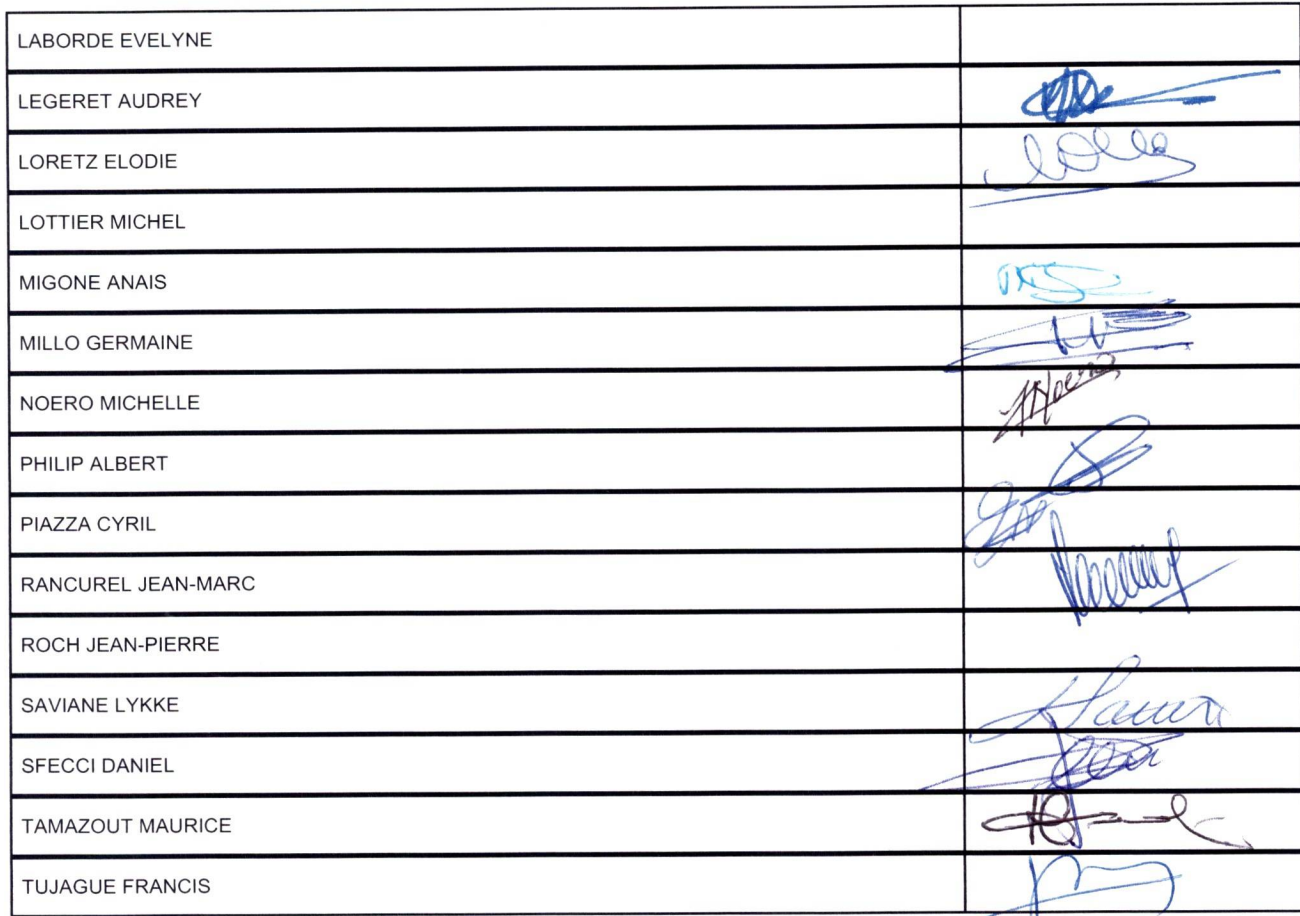 LABORDE EVELYNE
LEGERET AUDREY
LORETZ ELODIE
LOTTIER MICHEL
MIGONE ANAIS
MILLO GERMAINE
NOERO MICHELLE
PHILIP ALBERT
PIAZZA CYRIL
RANCUREL JEAN-MARC
ROCH JEAN-PIERRE
SAVIANE LYKKE
SFECCI DANIEL
TAMAZOUT MAURICE
TUJAGUE FRANCIS